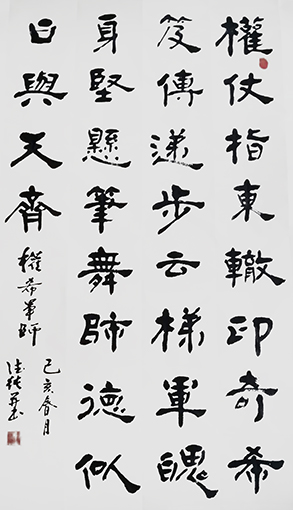 權仗指東轍印奇希
笈傳递步云梯軍魄
身堅懸筆舞師德似
日與天齊
權希軍師
己亥春月